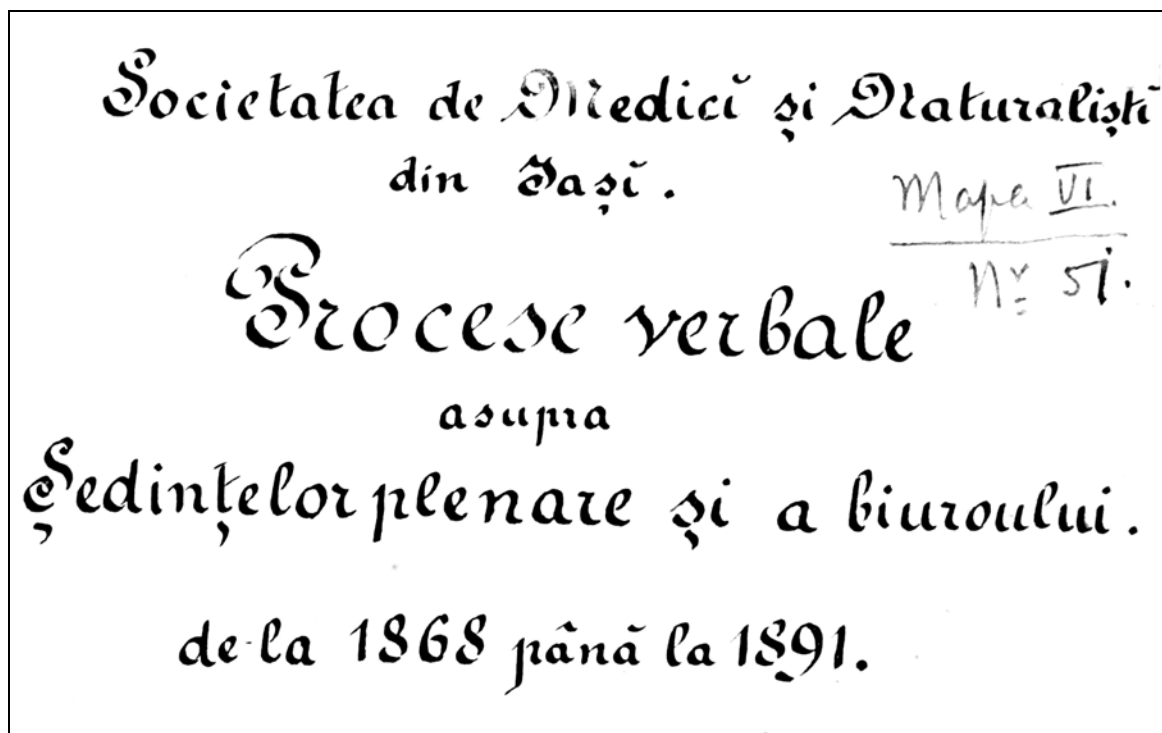 Societatea de Medicĭ și Naturaliștĭ
din Iașĭ.
Mapa VI.
Nr 51.
Procese verbale
asupra
Ședințelor plenare și a biuroului.
de la 1868 până la 1891.